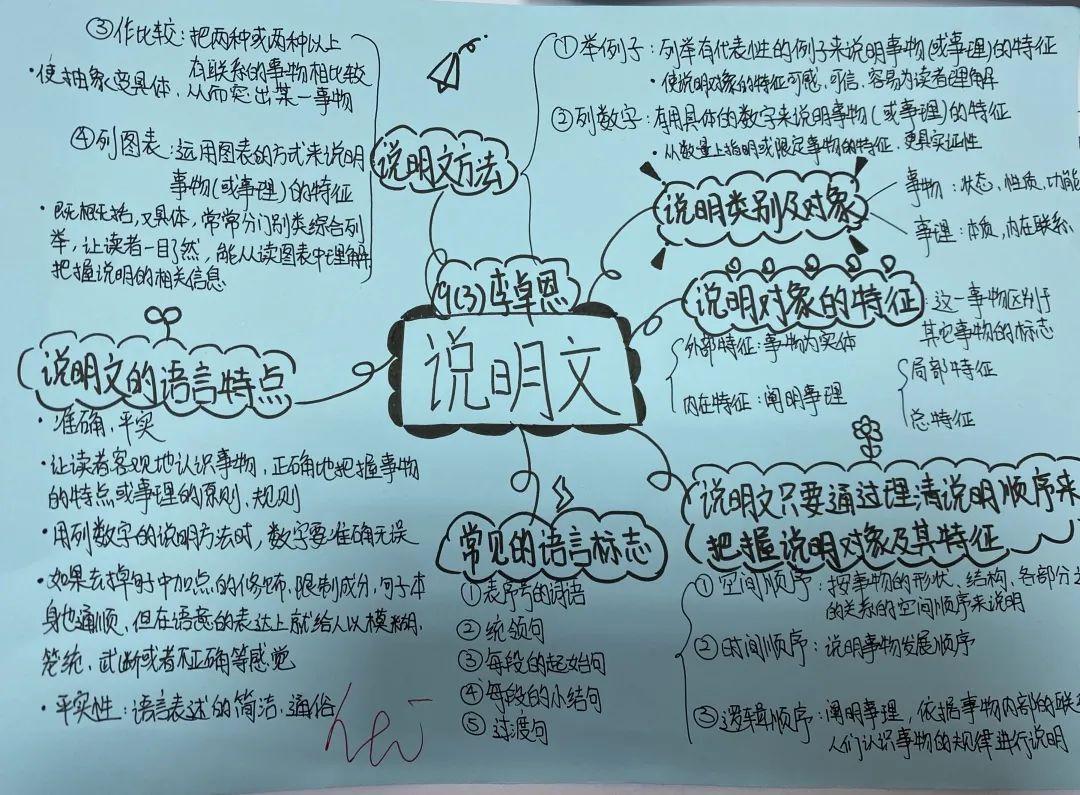 ③作比较：把两种或两种以上
有联系的事物相比较
·使抽象变具体，从而突出某一事物
④列图表：运用图表的方式来说明
事物(或事理)的特征
·既概括，又具体，常常分门别类综合列
举，让读者一目了然，能从读图表中理解
把握说明的相关信息
说明文方法
①举例子：列举有代表性的例子来说明事物(或事理)的特征
·使说明对象的特征可感、可信、容易为读者理解
②列数字：有用具体的数字来说明事物(或事理)的特征
·从数量上指明或限定事物的特征，更具实证性
说明类别及对象
事物：状态、性质、功能
事理：本质，内在联系
9(3)李卓恩
说明文
说明对象的特征：这一事物区别于
其它事物的标志
外部特征：事物为实体
内在特征：阐明事理
局部特征
总特征
说明文的语言特点
·准确，平实
·让读者客观地认识事物，正确地把握事物
的特点或事理的原则、规则
·用列数字的说明方法时，数字要准确无误
·如果去掉句子中加点的修饰、限制成分，句子本
身也通顺，但在语意的表达上就给人以模糊、
笼统、武断或者不正确等感觉
·平实性：语言表述的简洁、通俗
常见的语言标志
①表序号的词语
②统领句
③每段的起始句
④每段的小结句
⑤过渡句
说明文只要通过理清说明顺序来
把握说明对象及其特征
①空间顺序：按事物的形状、结构、各部分之
的关系的空间顺序来说明
②时间顺序：说明事物发展顺序
③逻辑顺序：阐明事理，依据事物内部的联系
人们认识事物的规律进行说明